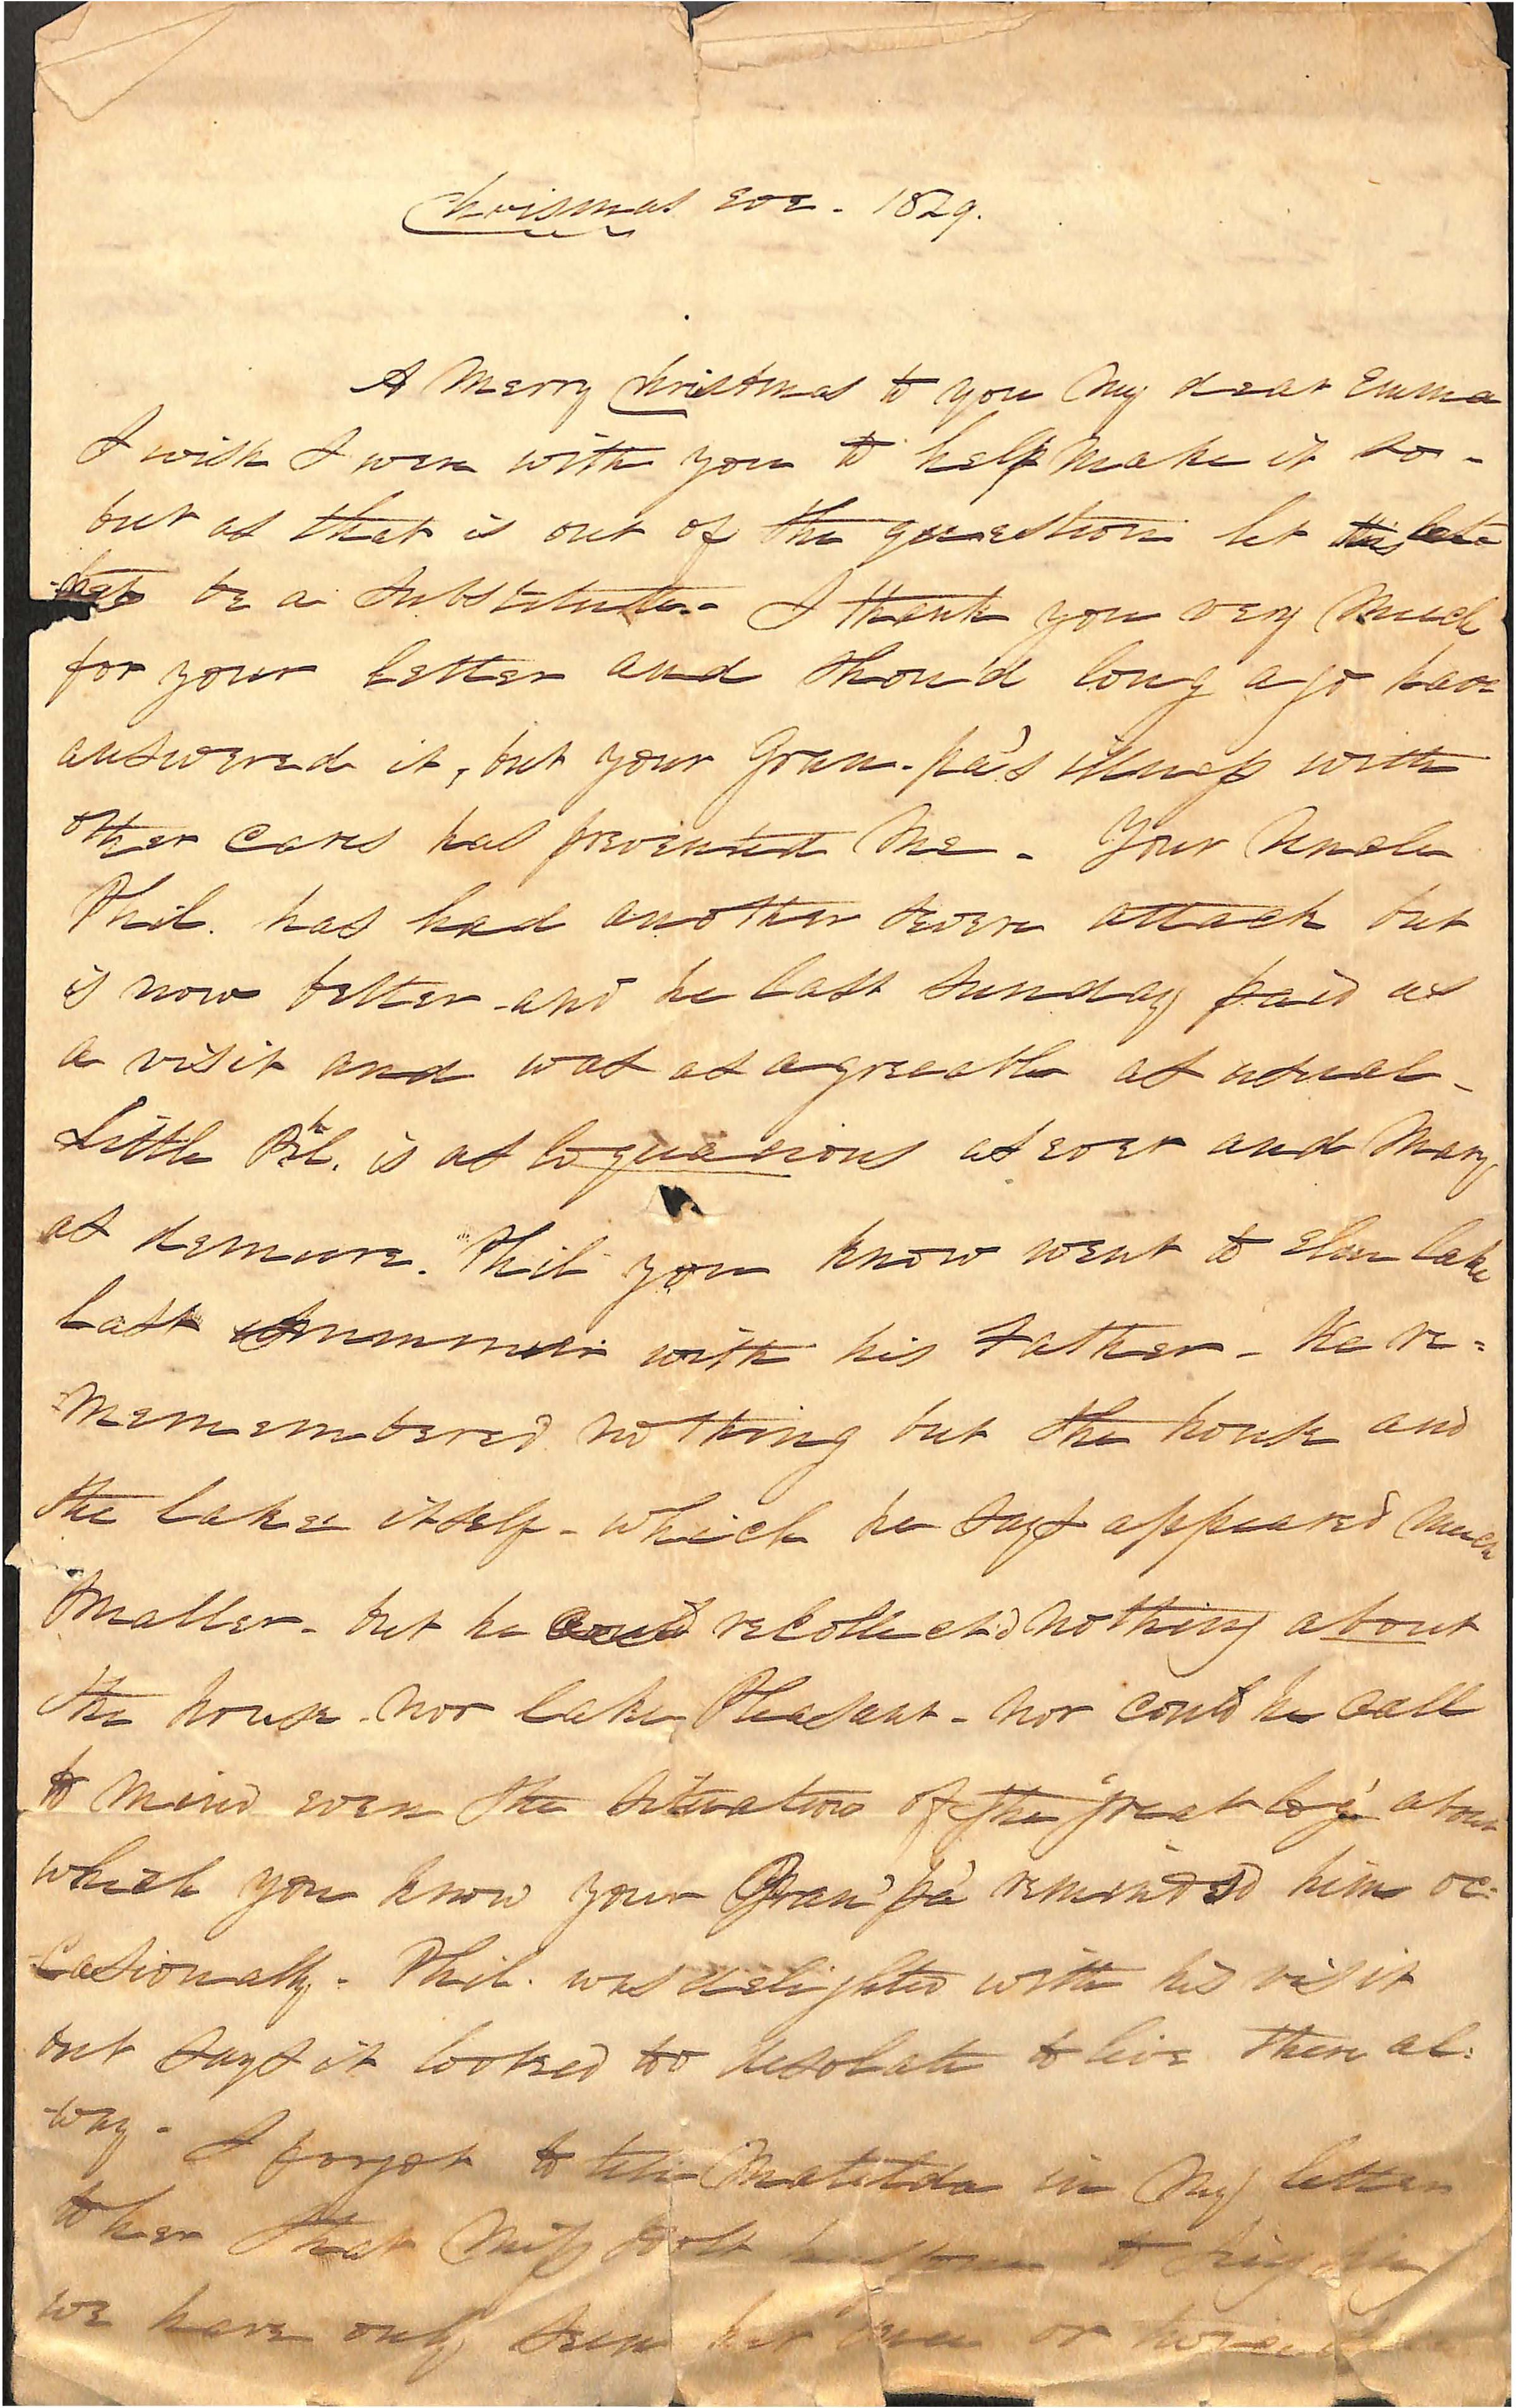 Chrismas Eve - 1829.
A Merry Christmas to you My dear Emma
I wish I were with you to help make it so -
but as that is out of the queestion let this
be a substitute - I thank you very Much
for your letter and shou'd long ago have
answered it, but your Gran-pa's illness with
other cares has prevented Me - Your Uncle
Phil. has had another severe attack but
is now better - and he last Sunday paid us
a visit and was as agreeable as usual -
Little Phl. is as loquacious as ever and Mary
as demure. Phil you know went to Elm lake
last summer with his Father - He re=
=Memembered nothing but the house and
the lake itself - which he says appeared Much
smaller - but he recollected nothing about
the house - nor lake Pleasant - nor could he call
to Mind even the situation of the "great log" about
which you know your Gran'pa' reminded him oc:
-casionally - Phil. was delighted with his visit
but says it looked too desolate to live there al:
-way - I forgot to tell Matilda in My letter
to her that Miss Holt to
we have only seen her once or